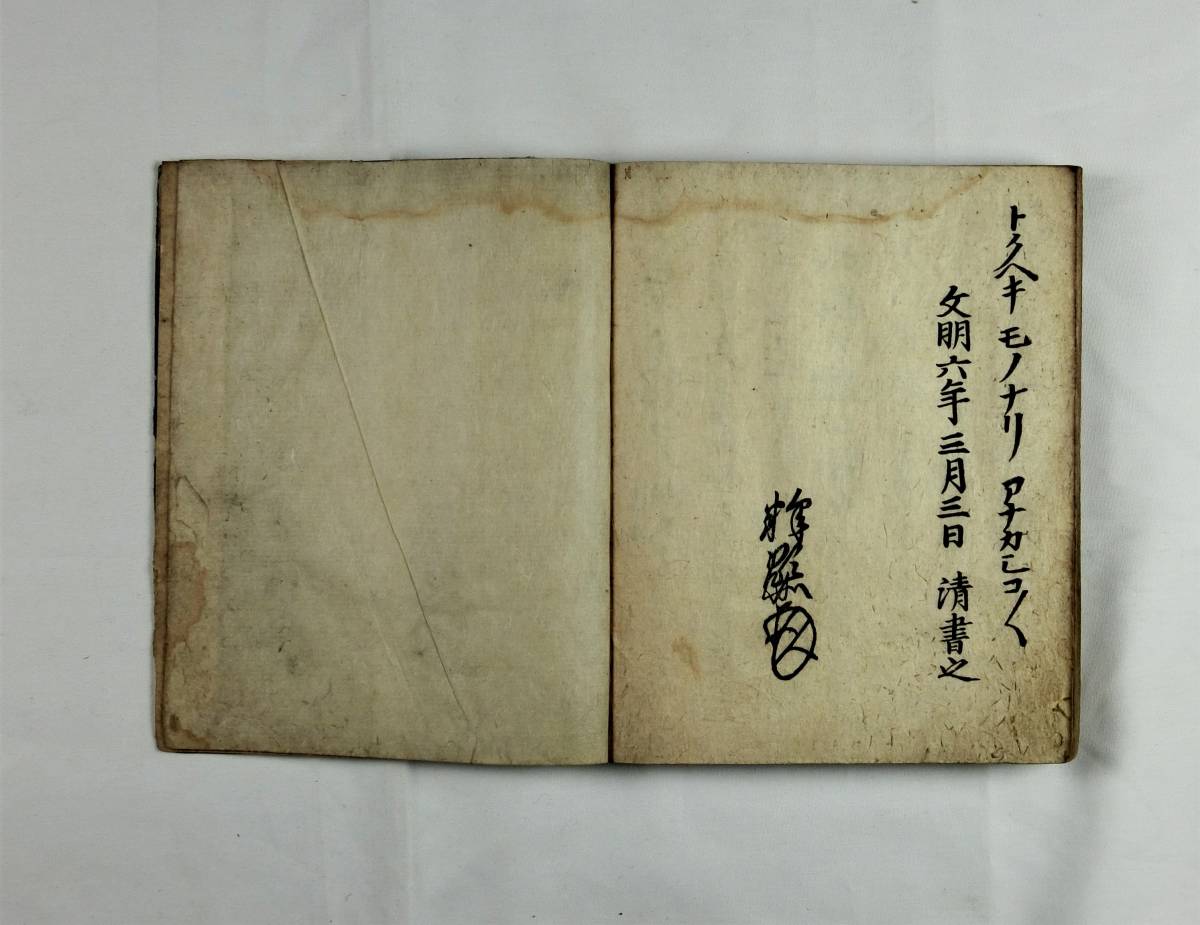 トクヘキモノナリ アナカシコ〱
文明六年三月三日 清書之
釋